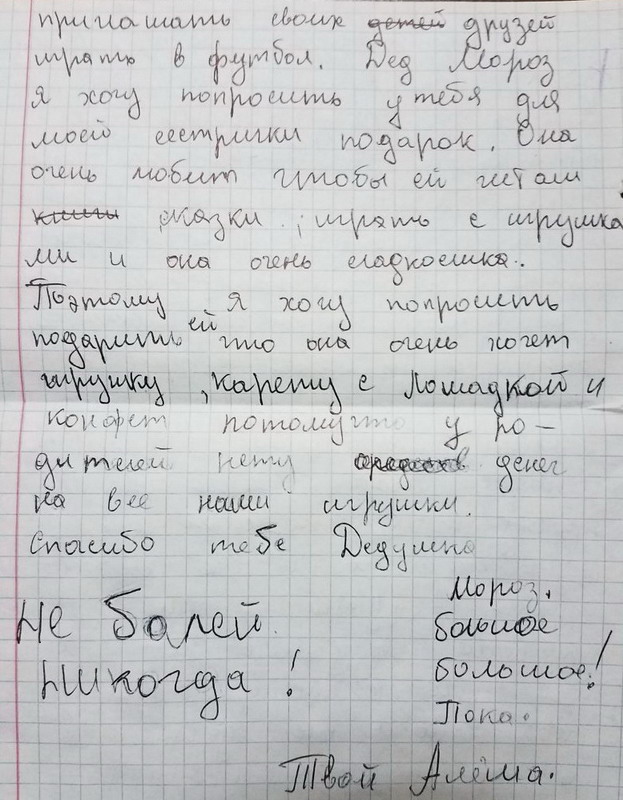 приглашать своих детей друзей
играть в футбол. Дед Мороз
я хочу попросить у тебя для
моей сестрички подарок. Она
очень любит чтобы ей читали
сказки, играть с игрушка
ми и она очень сладкоешка..
Поэтому я хочу попросить
подарить ей что она очень хочет
игрушку, карету с лошадкой и
конфет потомучто у ро-
дителей нету денег
на все наши игрушки.
Спасибо тебе Дедушка
Мороз.
большое
большое!
Пока.
Не болей
никогда!
Твой Алёша.